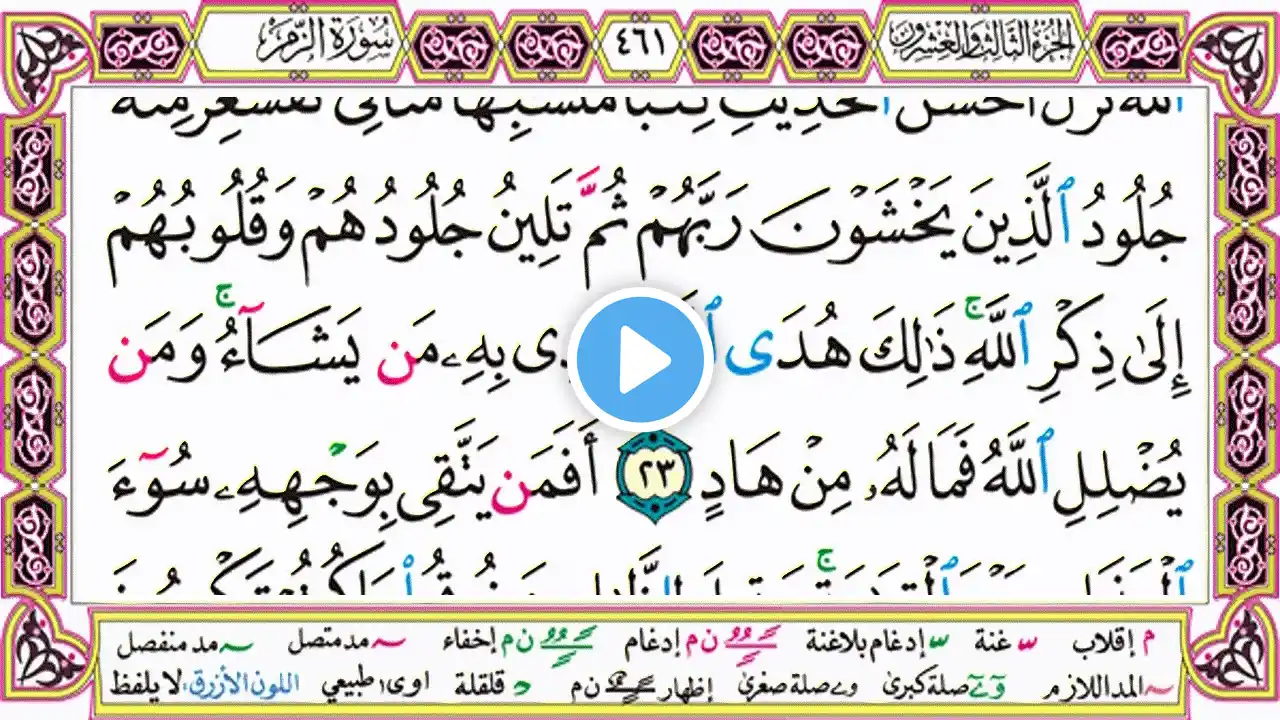 الجزء الثالث والعشرون
٤٦١
سورة الزمر
ٱللَّهُ نَزَّلَ أَحْسَنَ ٱلْحَدِيثِ كِتَٰبًا مُّتَشَٰبِهًا مَّثَانِىَ تَقْشَعِرُّ مِنْهُ
جُلُودُ ٱلَّذِينَ يَخْشَوْنَ رَبَّهُمْ ثُمَّ تَلِينُ جُلُودُهُمْ وَقُلُوبُهُمْ
إِلَىٰ ذِكْرِ ٱللَّهِ ۚ ذَٰلِكَ هُدَى بِهِۦ مَن يَشَآءُ ۚ وَمَن
يُضْلِلِ ٱللَّهُ فَمَا لَهُۥ مِنْ هَادٍ ٢٣ أَفَمَن يَتَّقِى بِوَجْهِهِۦ سُوٓءَ
م إقلاب ـّ غنة ـّ إدغام بلاغنة ن م إدغام ن م إخفاء ~ مد متصل ~ مد منفصل
~ المد اللازم و ے صلة كبرى و ے صلة صغرى ن م إظهار د قلقلة اوى طبيعي اللون الأزرق، لا يلفظ